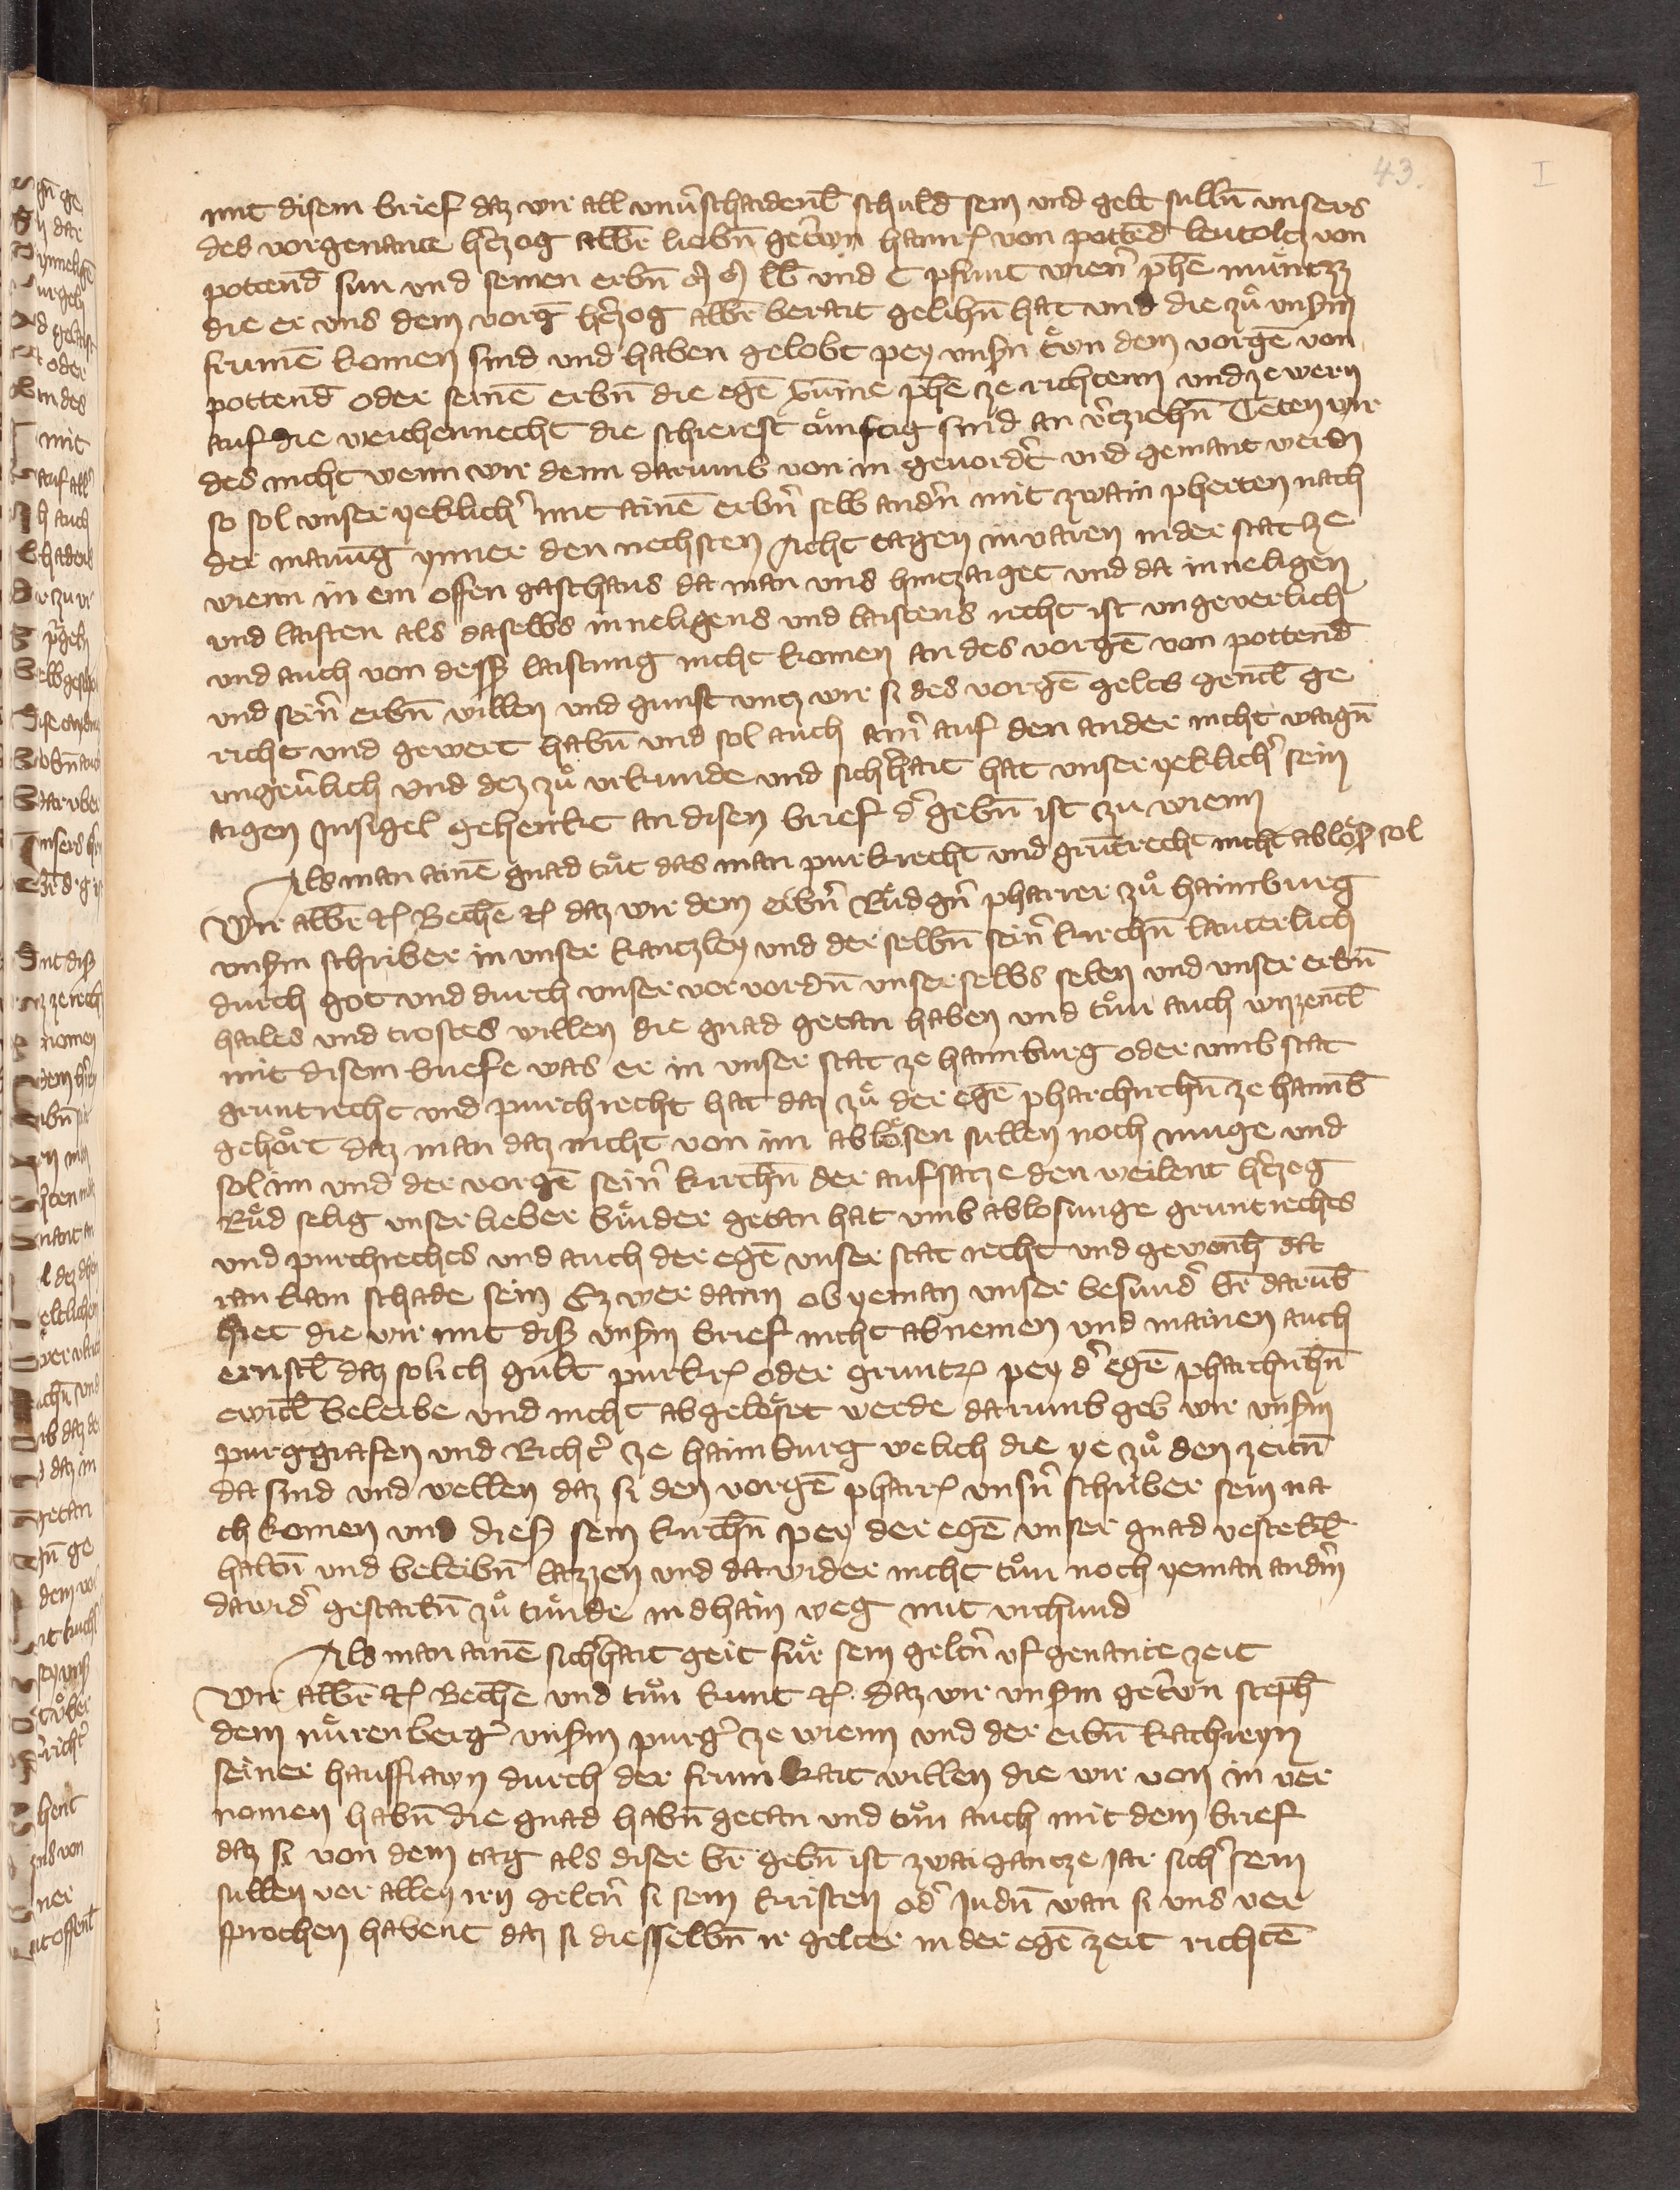 43.
I
mit disem brief daz wir all vnuͤschaidenl̄ schuld sein vnd gelt sullñ vnsers
des vorgenante hͤczog albr̄ liebñ getͤwn hainrͤ von pottēd leutoltz von
pottend sun vnd seinen erbñ lb̄ vnd C phunt wienͤ phē muͤnizz
die er vns dem vorḡ hͤczog albr̄ berait gelihñ hat vnd die zuͦ vnsͤm
frumē komen sind vnd haben gelobt pey vnsͤn tͤwn dem vorgē von
pottend oder seinē erbñ die egē sūme phē ze richtenn vnd ze wern
auf die weichennecht die schierest kuͤnftig sind an vͤcziehñ Teten wir
des nicht wenn wir denn darumb von in geuordͤt vnd gemant werdn
so sol vnser yeklichͤ mit ainē erbͤn selb andͤn mit zwain pherten nach
der manūg ynner den nechsten acht tagen inuaren in der stat ze
wienn in ein offen gasthaus da man vns hintzaiget vnd da inneligen
vnd laisten als daselbs inneligens vnd laistens recht ist vngeuerlich
vnd auch von desͤ laistung nicht komen an des vorgē von pottend
vnd seinͤ erbñ willen vnd gunst vntz wir si des vorgē gelts gentzl̄ ge
richt vnd gewert habñ vnd sol auch ainͤ auf den ander nicht waigñ
vngeuͤlich vnd dez zuͦ vrkunde vnd sichͤhait hat vnser yeklichͤ sein
aigen Insigel gehenkt an disen brief dͤ gebñ ist zu wienn
Als man ainē gnad tuͤt das man purkrecht vnd grūtrecht nicht abloͤsͤ sol
Wir albr̄ ꝛc Bechē ꝛc daz wir dem erbͤn Ruͤdgͤn pharrer zuͦ haimburg
vnsͤm schriber in vnser kantzley vnd der selbñ seinͤ kirchñ lauterlich
durch got vnd durch vnser vervordñ vnser selbs selen vnd vnser erbñ
hailes vnd trostes willen die gnad getan haben vnd tuͦn auch wizzentl̄
mit disem briefe was er in vnser stat ze haimburg oder vmb stat
gruntrecht vnd purchrecht hat daz zuͦ der egē pharchirchñ ze haimb̄
gehoͤrt daz man daz nicht von im abloͤsen sullen noch muge vnd
sol im vnd der vorgē seinͤ kirchñ der aufsatze den weilent hͤczog
Ruͦd selig vnser lieber bruͦder getan hat vmb ablosunge gruntrechts
vnd purchrechts vnd auch der egē vnser stat recht vnd gewonh̄ da
ran kain schade sein Ez wer dann ob yeman vnser besundͤ br̄ darūb
hiet die wir mit disͤ vnsͤm brief nicht abnemen vnd mainen auch
ernstl̄ daz solich guͤlt purkrͤ oder gruntrͤ pey dͤ egē pharchirchñ
ewicl̄ beleibe vnd nicht abgeloͤset werde darumb geb wir vnsͤm
purggrafen vnd Richtͤ ze haimburg welich die ye zuͦ den zeitñ
da sind vnd wellen daz si den vorgē pharrͤ vnsͤn schriber sein na
ch komen vnd diesͤ sein kirchñ pey der egē vnser gnad vestekl̄
haltñ vnd beleibñ lazzen vnd dawider nicht tuͦn noch yeman andͤm
dawidͤ gestattñ zuͦ tuͤnde in dhain weg mit vrchund
Als man ainē sichͤhait geit fuͤr sein geltͤn vf genante zeit
Wir albr̄ ꝛc Bechē vnd tuͦn kunt ꝛc daz wir vnsͤm getͤwn steph̄
dem nuͤrenbergͤ vnsͤm purgͤ ze wienn vnd der erbñ kathreyn
seiner hausfrawn durch der frumkait willen die wir von in ver
nomen habñ die gnad habñ getan vnd tuͦn auch mit dem brief
daz si von dem tag als diser br̄ gebñ ist zwai gantze jar sichͤ sein
sullen vor allen irn geltͤn si sein kristen odͤ Judñ wan si vns ver
sprochen habent daz si diesselbñ ir gelter in der egē zeit richtē